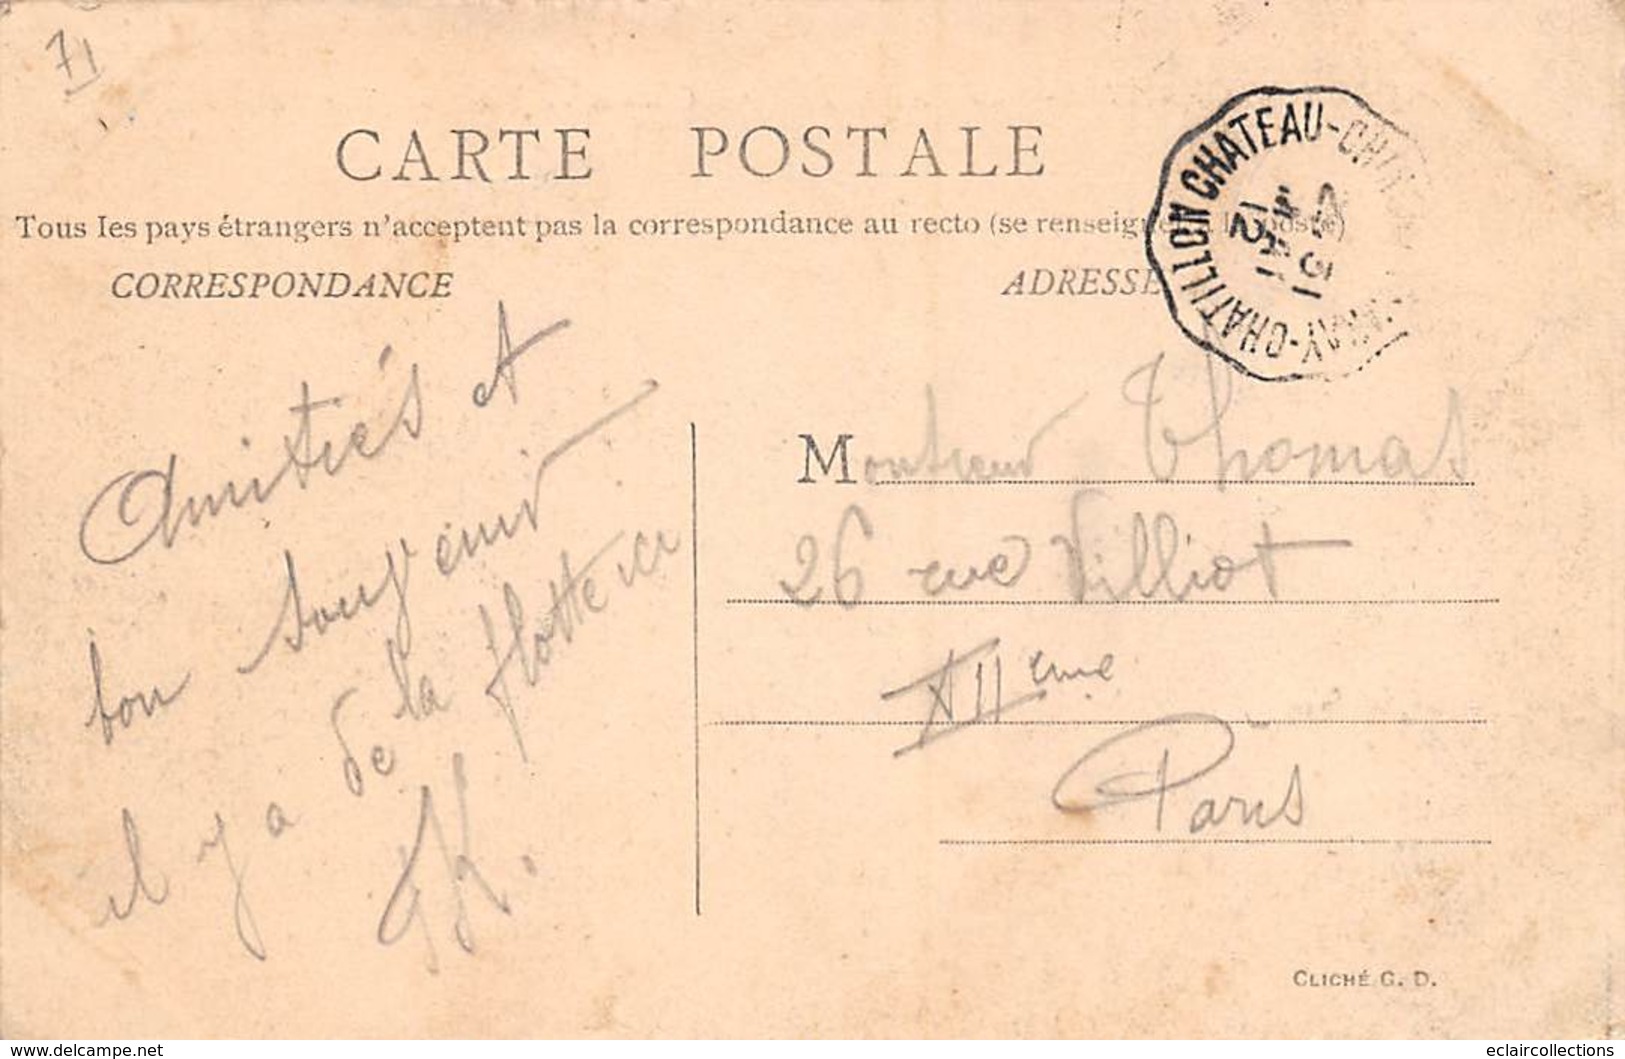 71
CARTE POSTALE
Tous les pays étrangers n'acceptent pas la correspondance au recto (se renseigner à la poste)
CORRESPONDANCE
ADRESSE
CHATILLON CHATEAU-CHI
AY-CHATILLON
Amitiés et
bon souvenir
il y a de la flotte ici
K.
Monsieur Thomas
26 rue Villiot
XII eme
Paris
CLICHÉ G. D.
www.delcampe.net
eclaircollections